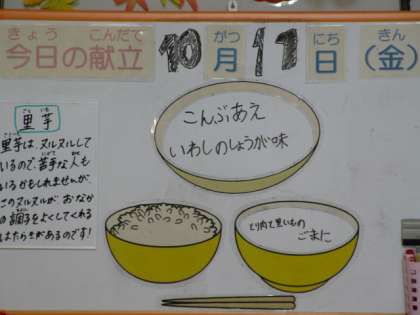 きょう こんだて がつ にち きん
今日の献立 10月11日(金)
さと いも
里芋
里芋は、ヌルヌルして
いるので、苦手な人も
いるかもしれませんが、
このヌルヌルが、おなか
の調子をよくしてくれる
はたらきがあるのです!
こんぶあえ
いわしのしょうが味
とり肉と里いもの
ごまに